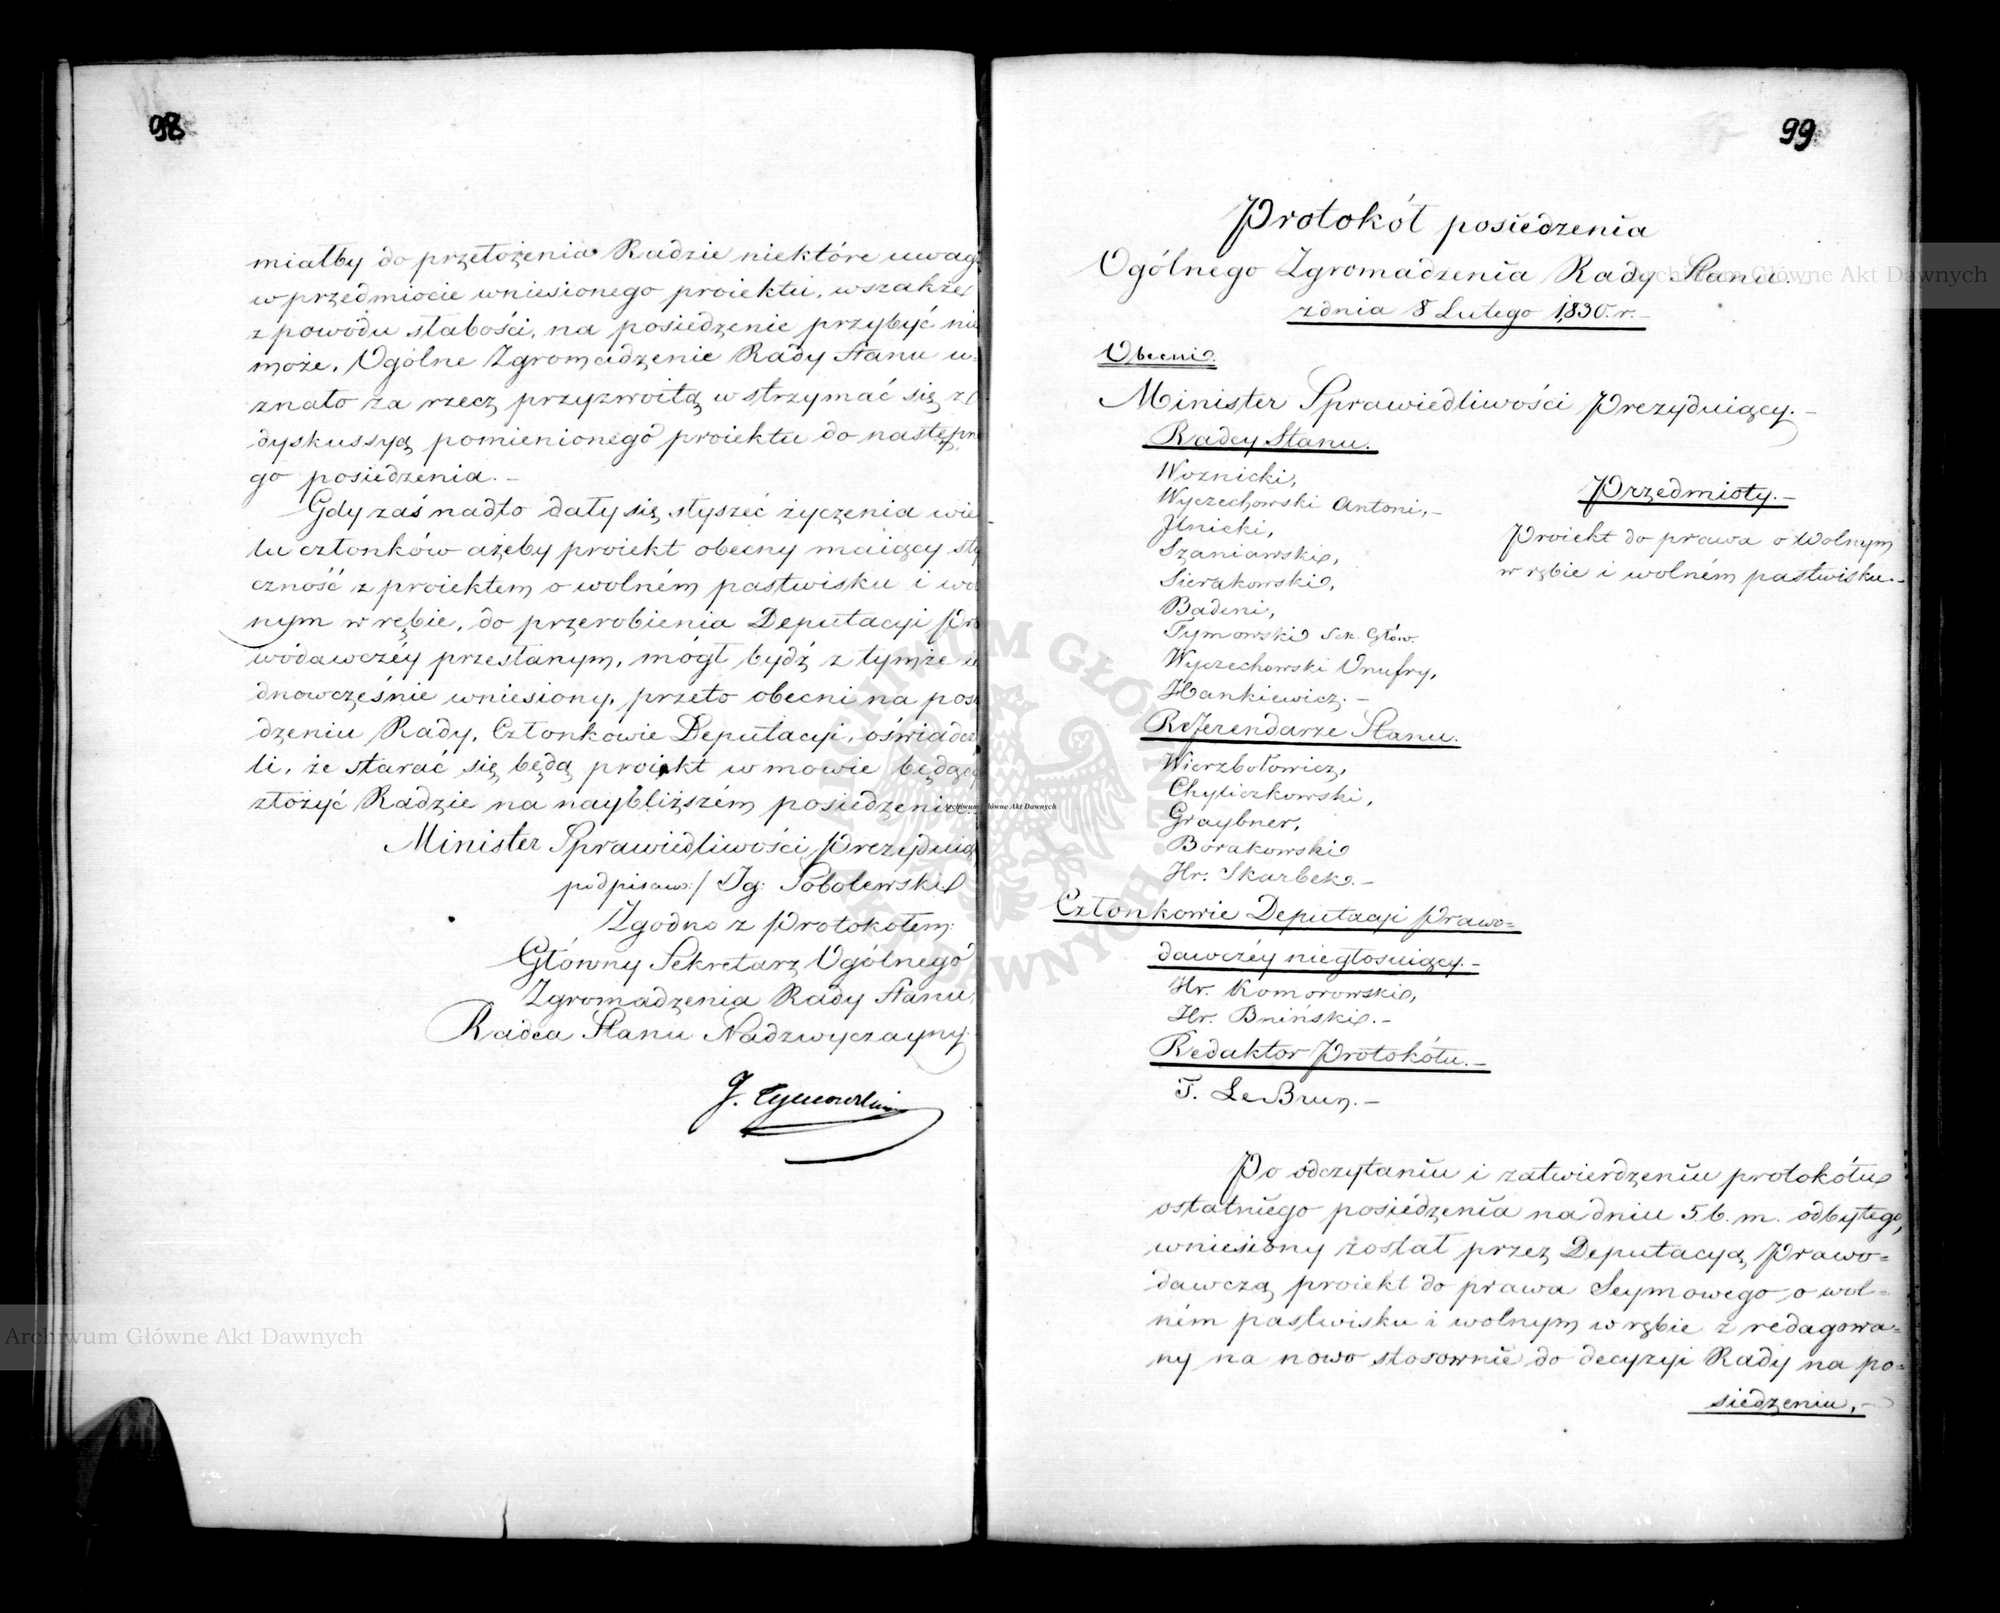 98
miałby do przełożenia Radzie niektóre uwag
w przedmiocie wniesionego proiektu, wszakże
z powodu słabości, na posiedzenie przybyć nie
może, Ogólne Zgromadzenie Rady Stanu u-
znało za rzecz przyzwoitą wstrzymać się z
dyskussyą pomienionego proiektu do następne
go posiedzenia.-
Gdy zaś nadto dały się słyszeć życzenia wie
lu członków ażeby proiekt obecny maiący sty
czność z proiektem o wolném pastwisku i wol
nym wrębie, do przerobienia Deputacyi Pra
wodawczéy przesłanym, mógł bydź z tymże ie
dnowcześnie wniesiony, przeto obecni na posie
dzeniu Rady, Członkowie Deputacyi, oświadczy
li, że starać się będą proiekt w mowie będący
złożyć Radzie na naybliższém posiedzeniu.
Minister Sprawiedliwości Prezyduią
podpisano:/ Ig: Sobolewski
Zgodno z Protokołem:
Główny Sekretarz Ogólnego
Zgromadzenia Rady Stanu,
Radca Stanu Nadzwyczayny.
J. Tymowski
99
Protokół posiedzenia
Ogólnego Zgromadzenia Rady Stanu.
z dnia 8 Lutego 1830. r.-
Obecni.
Minister Sprawiedliwości Prezyduiący.-
Radcy Stanu.
Woznicki,
Wyczechowski Antoni,-
Ilnicki,
Szaniawski,
Sierakowski,
Badeni,
Tymowski Sek. Głów.
Wyczechowski Onufry,
Hankiewicz.-
Przedmioty.-
Proiekt do prawa o Wolnym
wrębie i wolném pastwisku.-
Referendarze Stanu.
Wierzbołowicz,
Chyliczkowski,
Graybner,
Borakowski
Hr. Skarbek.-
Członkowie Deputacyi Prawo=
dawczéy niegłosuiący.-
Hr. Komorowski,
Hr. Bniński.-
Redaktor Protokółu.-
T. LeBrun.-
Po odczytaniu i zatwierdzeniu protokółu
ostatniego posiedzenia na dniu 5. b. m. odbytego,
wniesiony został przez Deputacyą Prawo=
dawczą proiekt do prawa Seymowego o wol=
ném pastwisku i wolnym wrębie zredagowa=
ny na nowo stosownie do decyzyi Rady na po=
siedzeniu.-
Archiwum Główne Akt Dawnych
Archiwum Główne Akt Dawnych
Archiwum Główne Akt Dawnych
ARCHIWUM GŁÓWNE AKT DAWNYCH